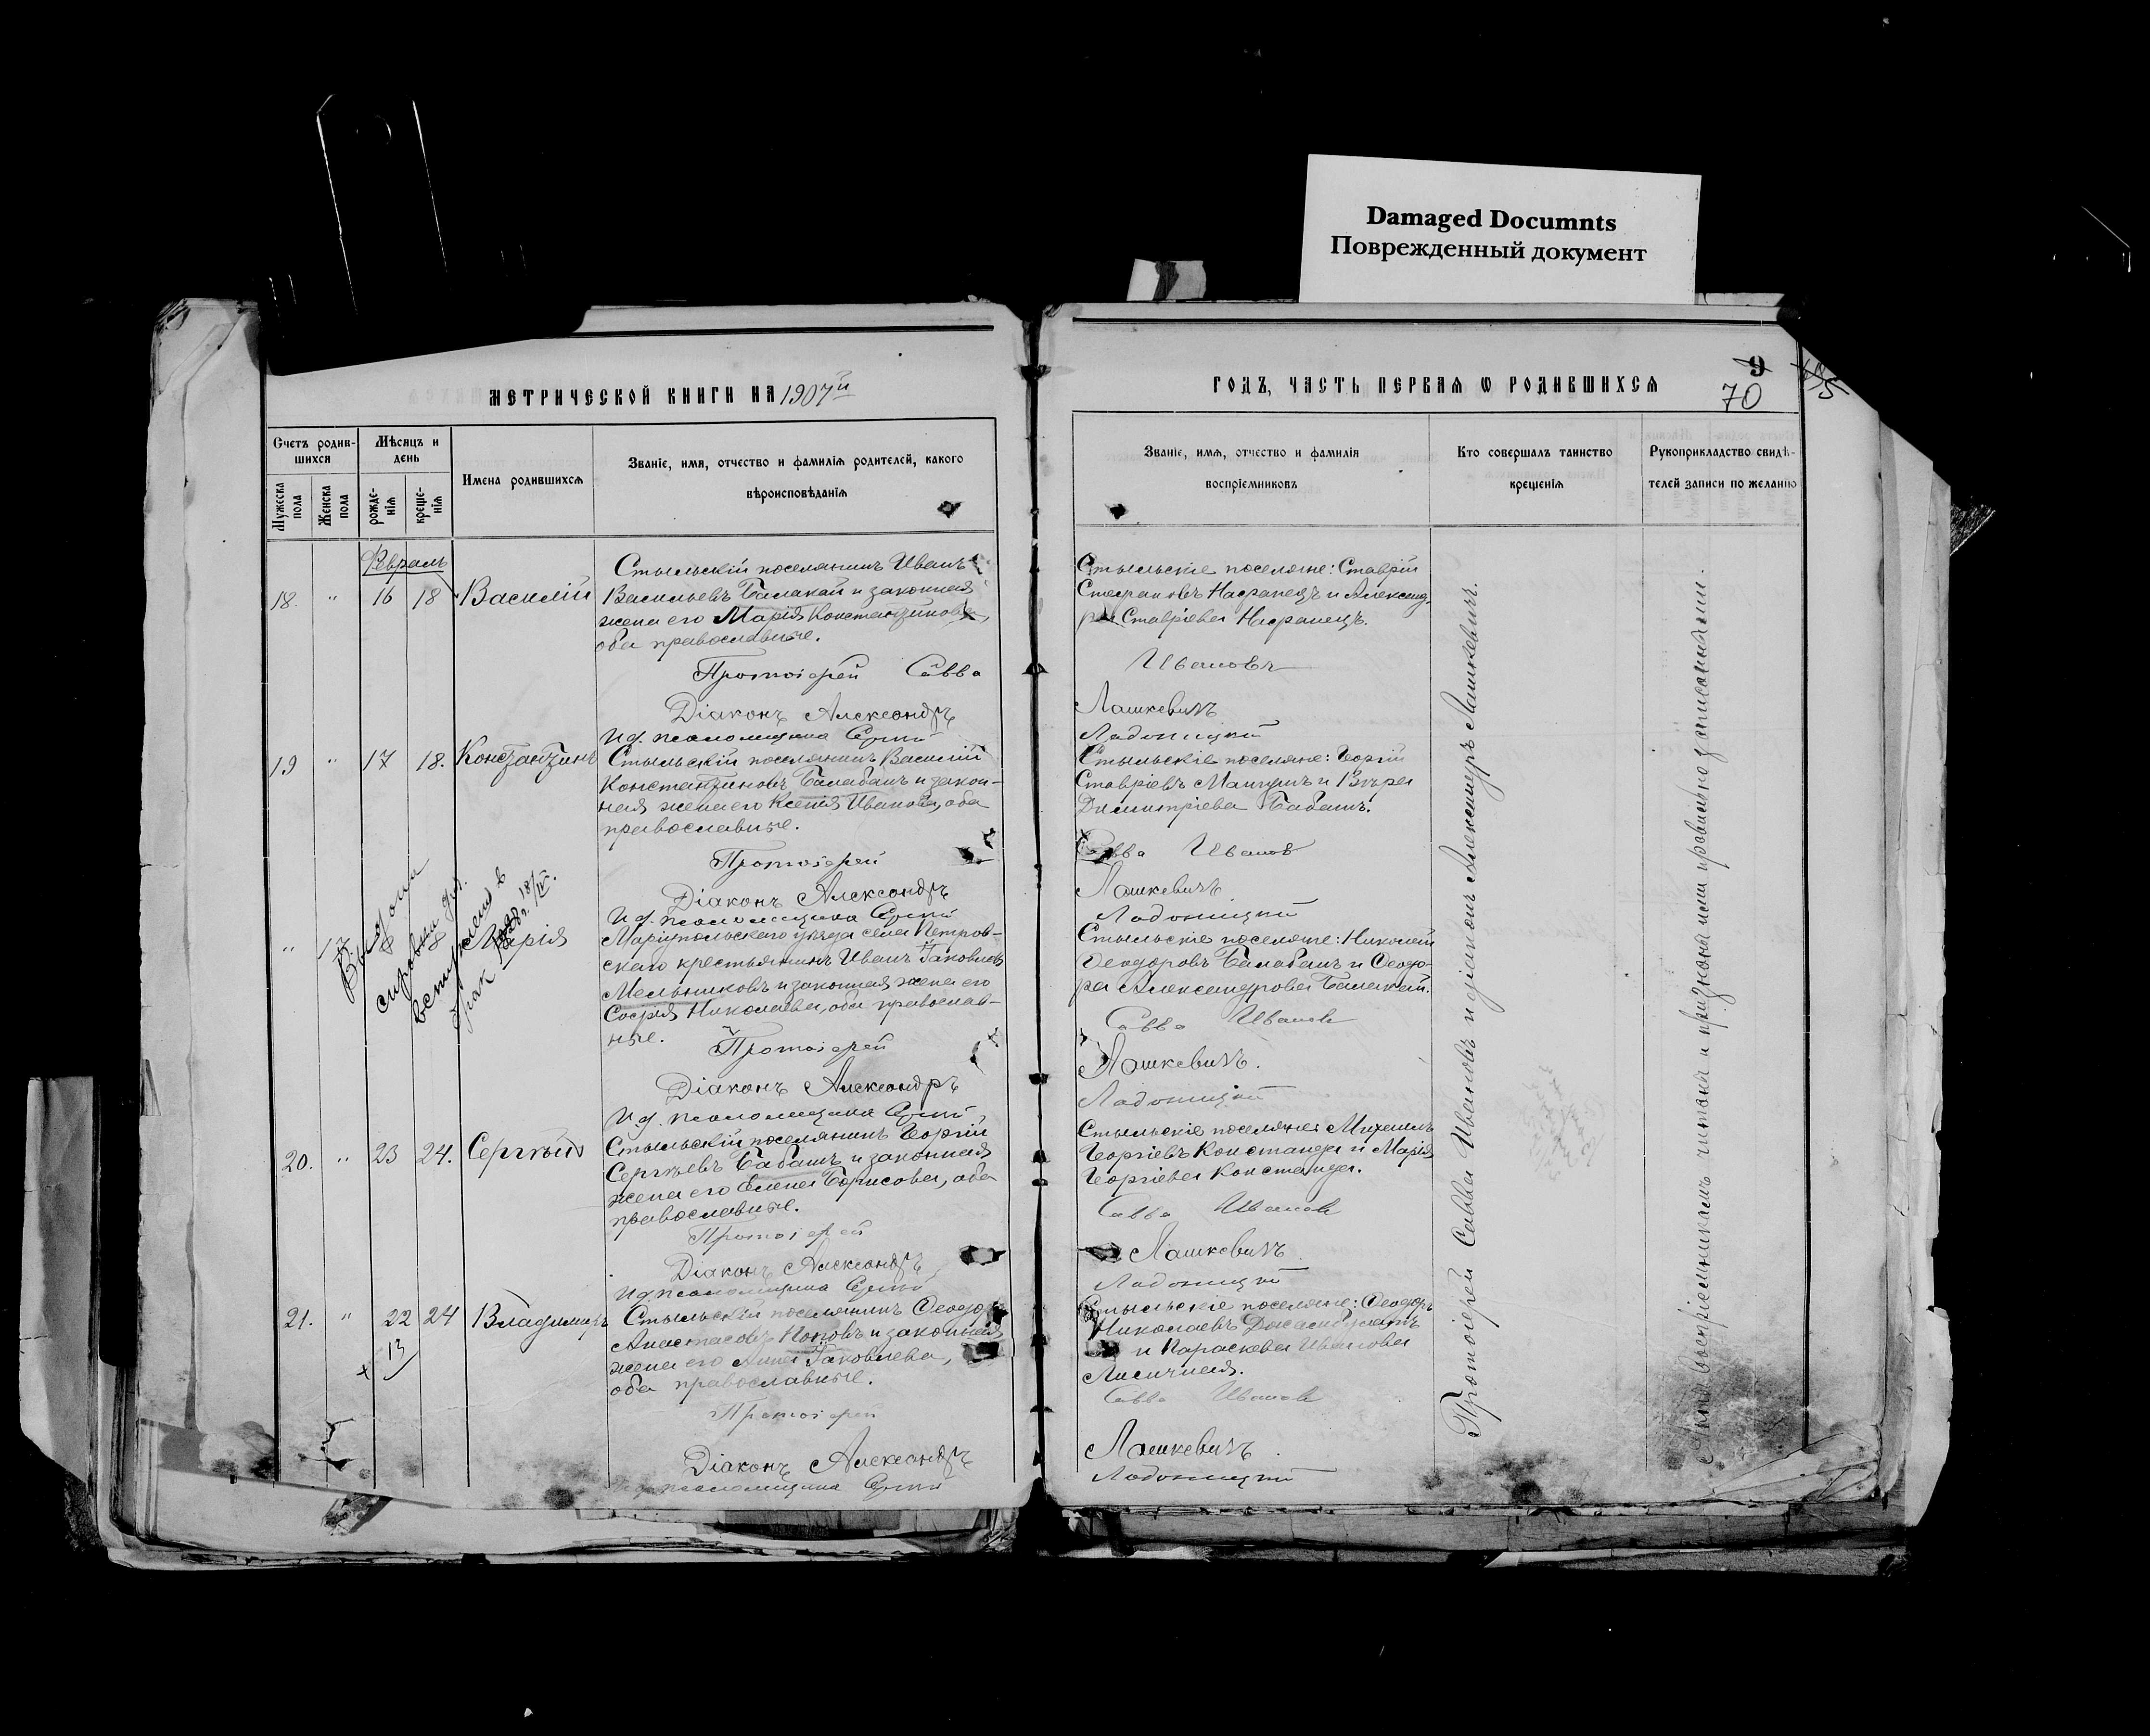 Damaged Documnts
Поврежденный документ
МЕТРИЧЕСКОЙ КНИГИ НА 1907 й
Счетъ родив-
шихся
Мѣсяцъ и
день
Имена родившихся
Званіе, имя, отчество и фамилія родителей, какого
вѣроисповѣданія
Мужеска
пола
Женска
пола
рожде-
нія
креще-
нія
Февраль
18. " 16 18 Василій
Стыльскій поселянинъ Иванъ
Васильевъ Балакай и законная
жена его Марія Константинова,
оба православные.
Протоіерей Савва
Діаконъ Александръ
И д. псаломщика Сергій
19 " 17 18. Константинъ
Стыльскій поселянинъ Василій
Константиновъ Балабанъ и закон-
ная жена его Ксенія Иванова, оба
православные.
Протоіерей
Діаконъ Александръ
И д. псаломщика Сергій
" 17. 8 8 Марія
Маріупольскаго уѣзда села Петров-
скаго крестьянинъ Иванъ Іаковлевъ
Мельниковъ и законная жена его
Софія Николаева, оба православ-
ные.
Протоіерей
Діаконъ Александръ
И д. псаломщика Сергій
20. " 23 24. Сергѣй
Стыльскій поселянинъ Георгій
Сергѣевъ Бабашъ и законная
жена его Елена Борисова, оба
православные.
Протоіерей
Діаконъ Александръ
И д. псаломщика Сергій
21. " 22 24 Владимиръ
+ 13
Стыльскій поселянинъ Ѳеодоръ
Анастасовъ Поповъ и законная
жена его Анна Іаковлева,
оба православные.
Протоіерей
Діаконъ Александръ
И д. псаломщика Сергій
ГОДЪ, ЧАСТЬ ПЕРВАЯ Ѡ РОДИВШИХСЯ
9
70
Званіе, имя, отчество и фамилія
воспріемниковъ
Кто совершалъ таинство
крещенія
Рукоприкладство свидѣ-
телей записи по желанію
Стыльскіе поселяне: Ставрій
Стефановъ Насранецъ и Александ-
ра Ставріева Насранецъ.
Ивановъ
Лашкевичъ
Ладоницкій
Стыльскіе поселяне: Георгій
Ставріевъ Мангушъ и Вѣра
Димитріева Бабашъ.
Савва Иванов
Лашкевичъ
Ладоницкій
Стыльскіе поселяне: Николай
Ѳеодоровъ Балабанъ и Ѳеодо-
ра Александрова Балакай.
Савва Иванов
Лашкевичъ.
Ладоницкій
Стыльскіе поселяне Михаилъ
Георгіевъ Константа и Марія
Георгіева Константа.
Савва Иванов
Лашкевичъ.
Ладоницкій
Стыльскіе поселяне: Ѳеодоръ
Николаевъ
и Параскева Иванова
Савва Иванов
Лашкевичъ.
Ладоницкій
Протоіерей Савва Ивановъ и діаконъ Александръ Лашкевичъ.
воспріемникамъ читана и признана ими правильно записанными.